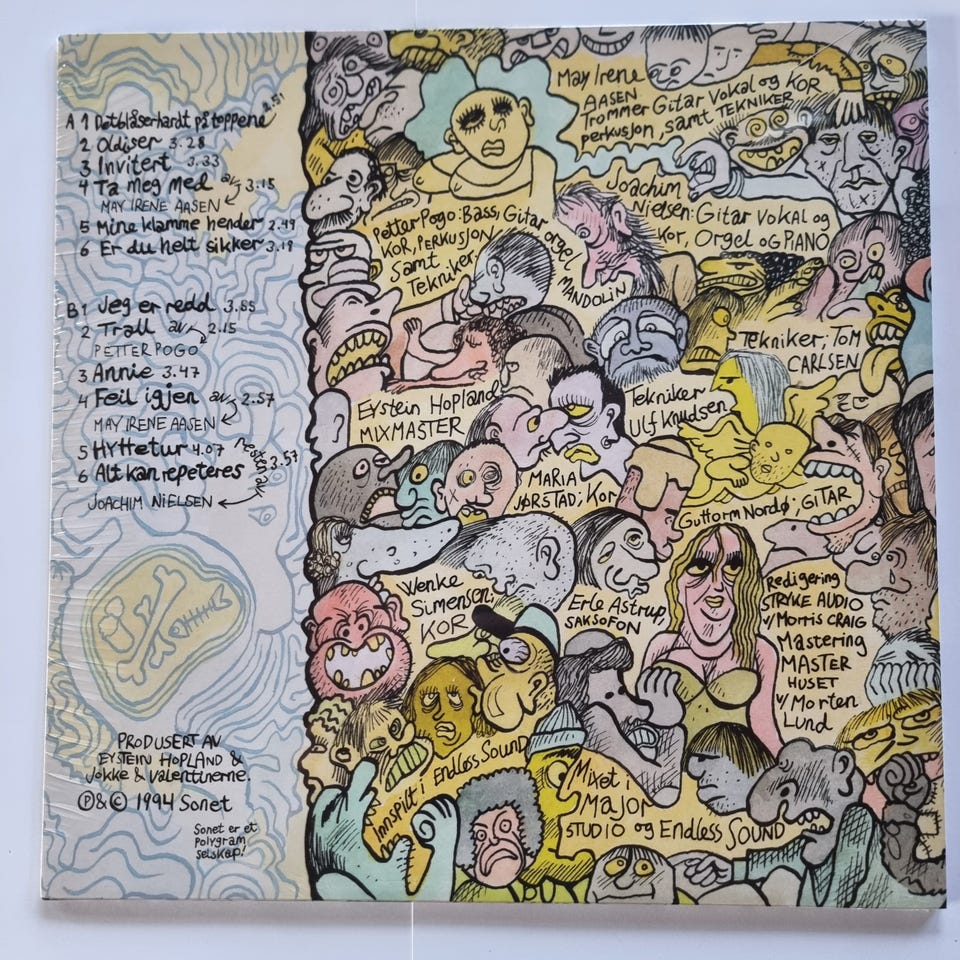 A 1 Det blåser hardt på toppene 2.51
2 Oldiser 3.28
3 Invitert 3.33
4 Ta meg med av 3.15
MAY IRENE AASEN
5 Mine klamme hender 2.49
6 Er du helt sikker 3.19
B 1 Jeg er redd 3.55
2 Trall av 2.15
PETTER POGO
3 Annie 3.47
4 Feil igjen av 2.57
MAY IRENE AASEN
5 Hyttetur 4.07
6 Alt kan repeteres 3.57
resten av
JOACHIM NIELSEN
PRODUSERT AV
EYSTEIN HOPLAND &
Jokke & Valentinerne.
Ⓟ&© 1994 Sonet
Sonet er et
Polygram
selskap!
May Irene
AASEN
Trommer Gitar Vokal og KOR
perkusjon, samt TEKNIKER
Petter Pogo: Bass, Gitar orgel
KOR, PERKUSJON
Samt
Tekniker
Joachim
Nielsen: Gitar Vokal og
Kor, Orgel og PIANO
MANDOLIN
Tekniker; TOM
CARLSEN
Eystein Hopland
MIXMASTER
Tekniker
Ulf Knudsen
MARIA
JØRSTAD; Kor
Guttorm Nordø; GITAR
Wenke
Simensen:
KOR
Erle Astrup,
SAKSOFON
Redigering
STRYKE AUDIO
v/Morris CRAIG
Mastering
MASTER
HUSET
v/Morten
Lund
Innspilt i Endless Sound
Mixet i
Major
STUDIO og Endless Sound